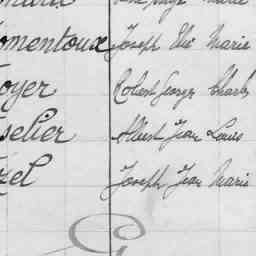 omentoux Joseph Marie
oyer Robert George Charles
selier Albert Jean Louis
zel Joseph Jean Marie
G